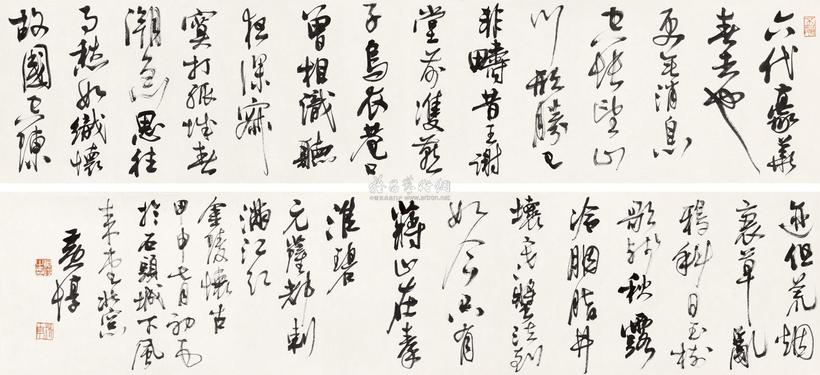 六代豪華
春去也
更無消息
空悵望山
川形勝已
非疇昔王謝
堂前雙燕
子烏衣巷口
曾相識聽
夜深寂
寞打孤城春
潮急思往
事愁如織懷
故國空陳
迹但荒烟
衰草亂
鴉斜日玉樹
歌殘秋露
冷胭脂井
壞寒螿泣到
如今只有
蔣山在秦
淮碧
元薩都剌
滿江紅
金陵懷古
甲申七月初
於石頭城下風
來堂北窗
黃惇